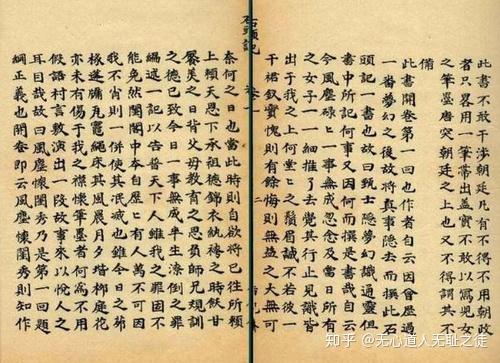 此書不敢干涉朝廷凡有不得不用朝政
者只畧用一筆帶出蓋實不敢以寫兒女
之筆墨唐突朝廷之上也又不得謂其不
備
此書開卷第一回也作者自云因曾歷過
一番夢幻之後故將真事隱去而撰此石
頭記一書也故曰甄士隱夢幻識通靈但
書中所記何事又因何而撰是書哉自云
今風塵碌〻一事無成忽念及當日所有
之女子一一細推了去覺其行止見識皆
出于我之上何堂〻之鬚眉誠不若彼一
干裙釵實愧則有餘悔則無益之大無可
石頭記 卷一 二
奈何之日也當此時則自欲將已往所賴
上賴天恩下承祖德錦衣紈袴之時飫甘
饜美之日背父母教育之恩負師兄規訓
之德已致今日一事無成半生潦倒之罪
編述一記以告普天下人雖我之罪固不
能免然閨閣中本自歷〻有人萬不可因
我不肖則一併使其泯滅也雖今日之茆
椽蓬牖瓦竈繩床其風晨月夕堦柳庭花
亦未有傷于我之襟懷筆墨者何為不用
假語村言敷演出一段故事來以悅人之
耳目哉故曰風塵懷閨秀乃是第一回題
綱正義也開卷即云風塵懷閨秀則知作
知乎 @无心道人无耻之徒